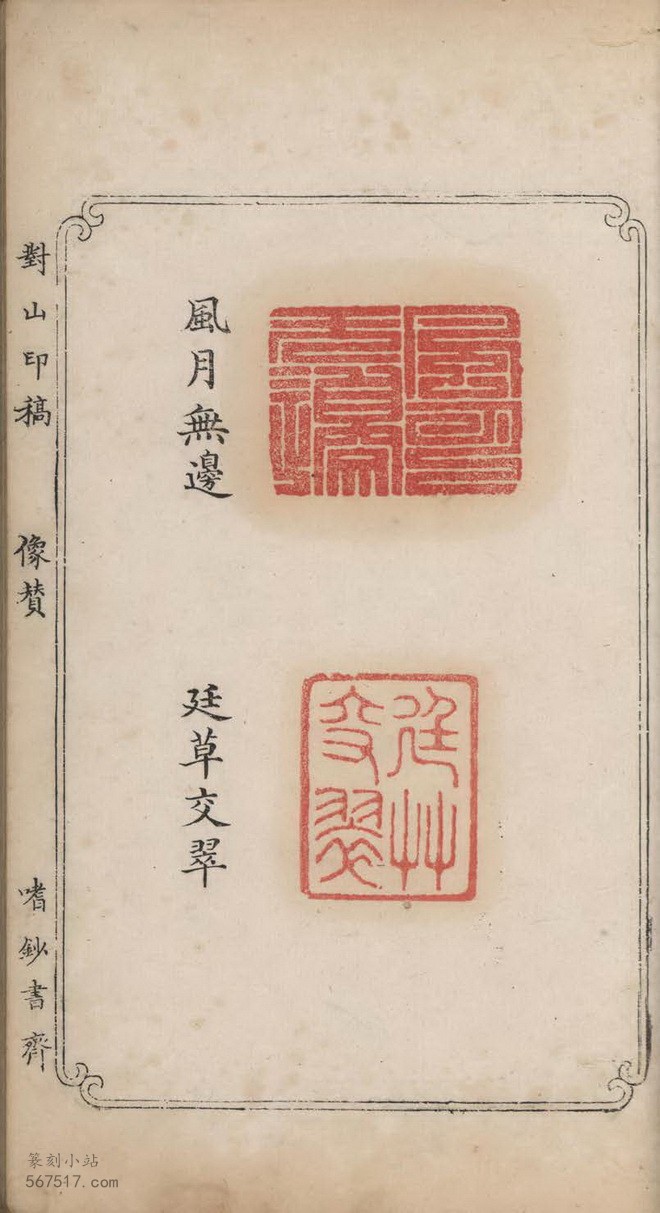 風月無邊
風月無邊
廷草交翠
廷艸交翠
對山印稿
像贊
嗜鈔書齊
篆刻小站
567517.com